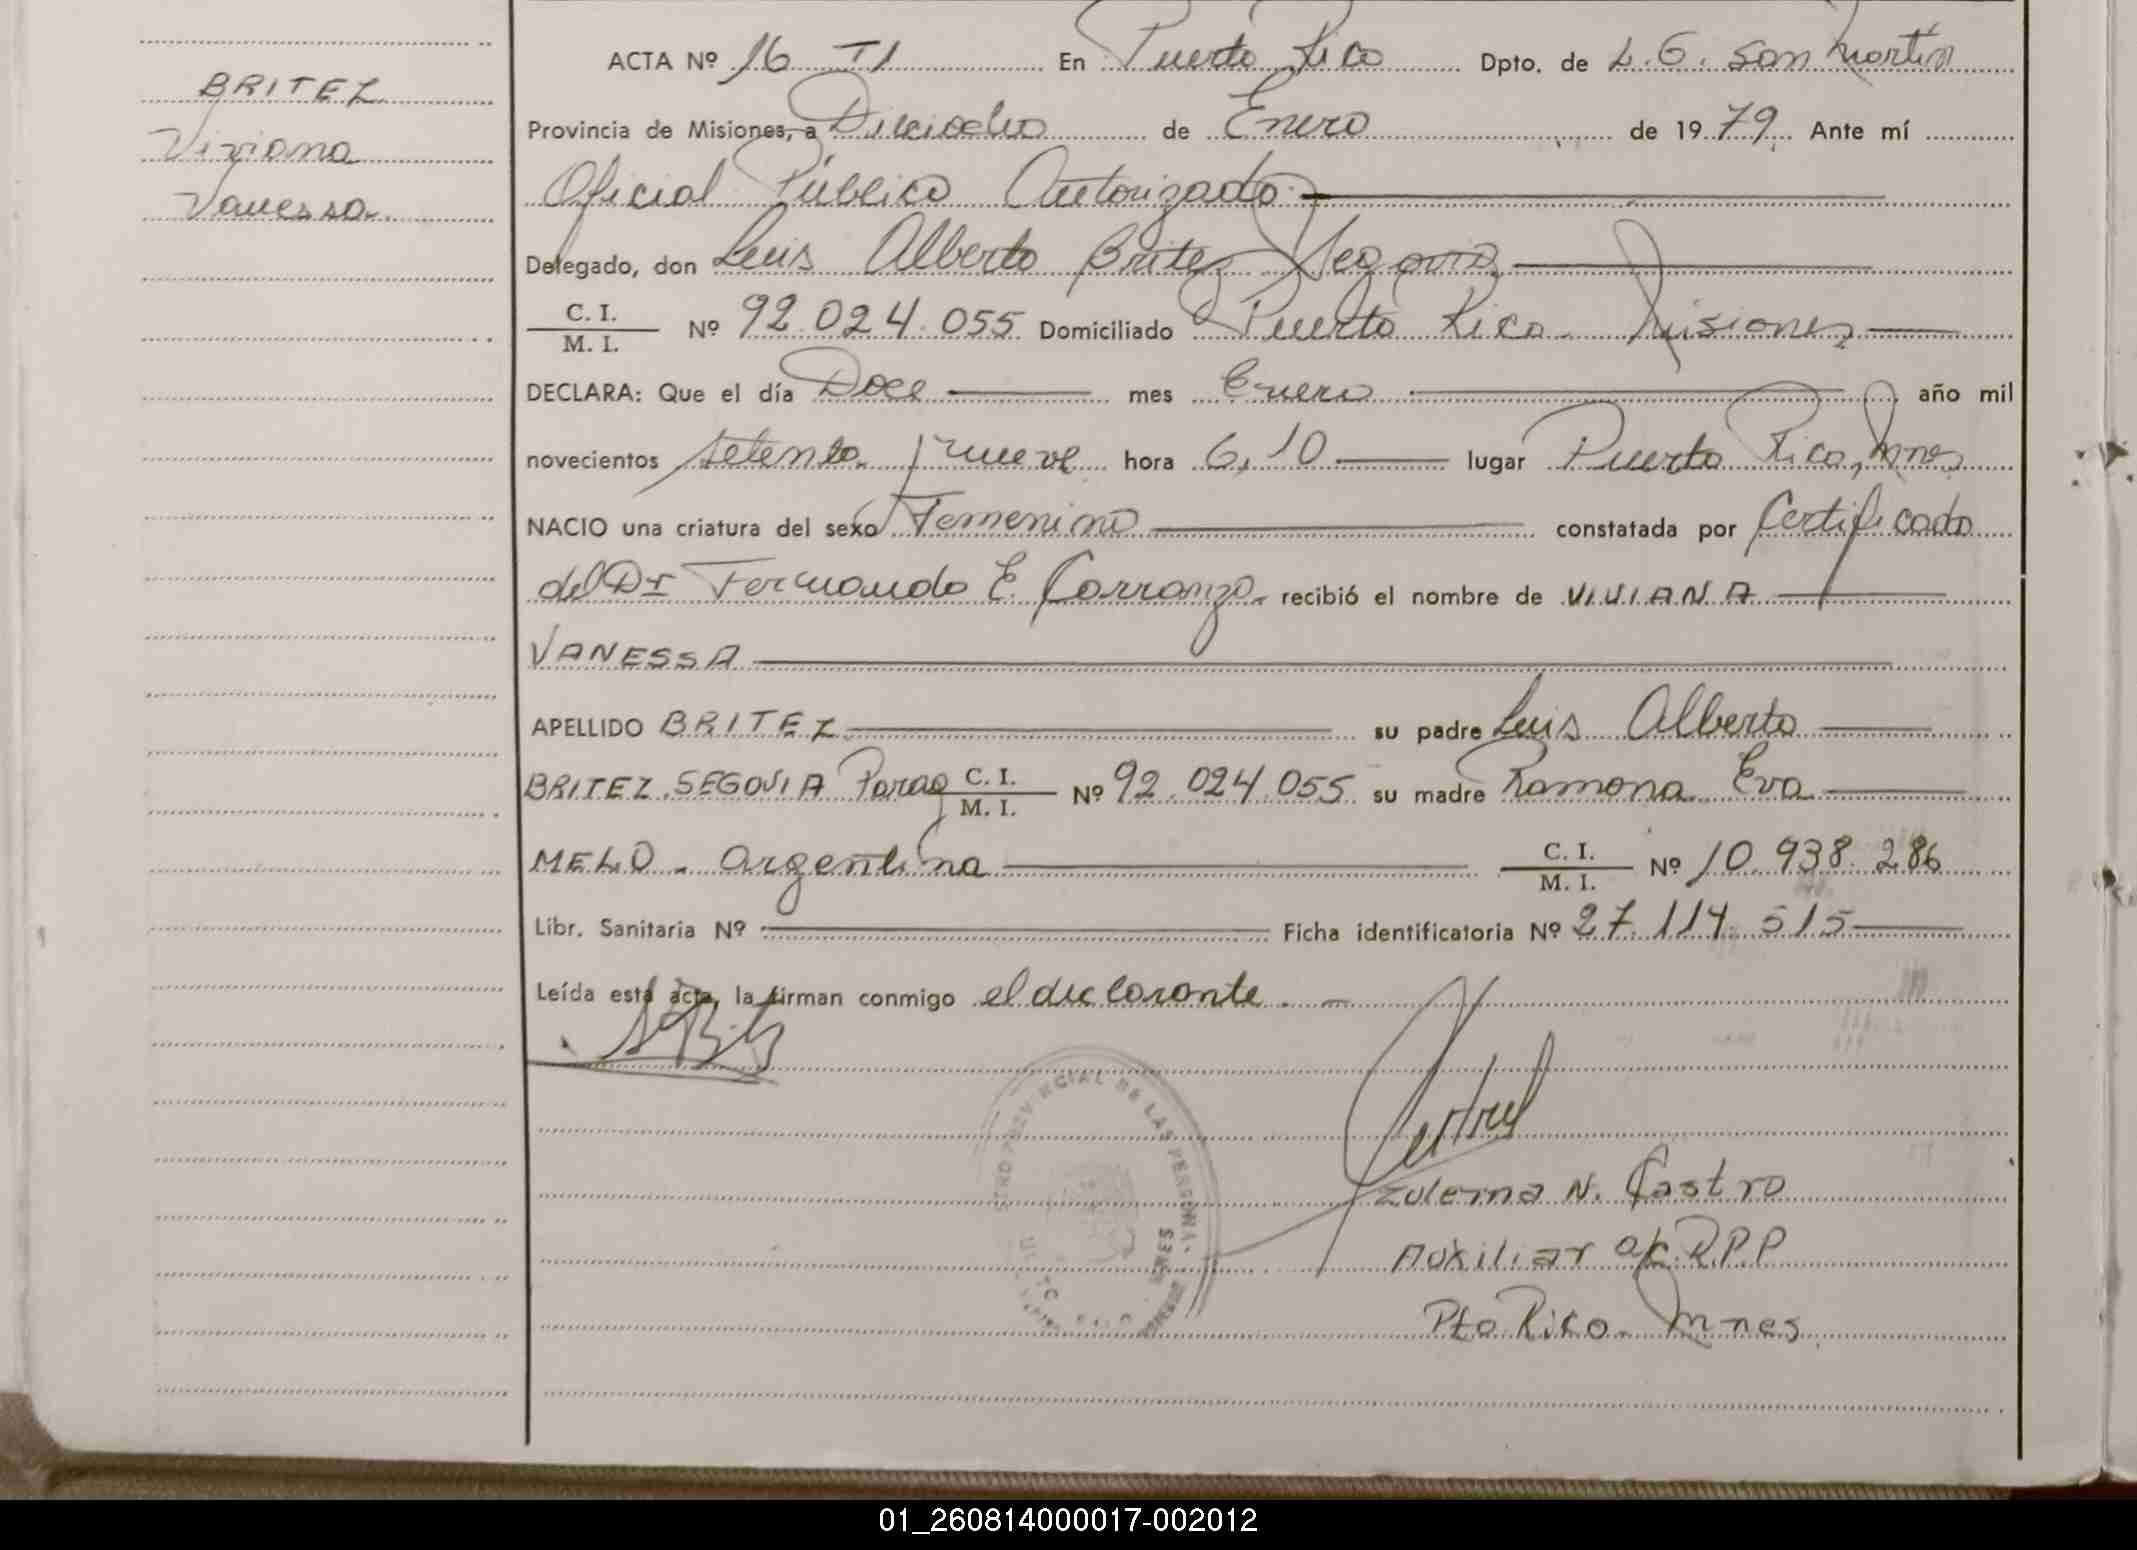 BRITEZ
Viviana
Vanessa
ACTA Nº 16 T I En Puerto Rico Dpto. de L. G. San Martín
Provincia de Misiones, a Dieciocho de Enero de 1979. Ante mí
Oficial Público Autorizado
Delegado, don Luis Alberto Britez Segovia,
C. I.
M. I. Nº 92.024.055 Domiciliado Puerto Rico - Misiones
DECLARA: Que el día Doce mes Enero año mil
novecientos setenta y nueve hora 6,10 lugar Puerto Rico, Mnes
NACIO una criatura del sexo Femenino constatada por Certificado
del Dr Fernando E. Carranza recibió el nombre de VIVIANA
VANESSA
APELLIDO BRITEZ su padre Luis Alberto
BRITEZ SEGOVIA Parag C. I. Nº 92.024.055 su madre Ramona Eva
M. I.
MELO - Argentina C. I. Nº 10.938.286
M. I.
Libr. Sanitaria Nº Ficha identificatoria Nº 27.114.515
Leída esta acta, la firman conmigo el declarante. -
NCIAL DE LAS PERSONA
Zulema N. Castro
Auxiliar a/c R.P.P
Pto Rico - Mnes
01_260814000017-002012